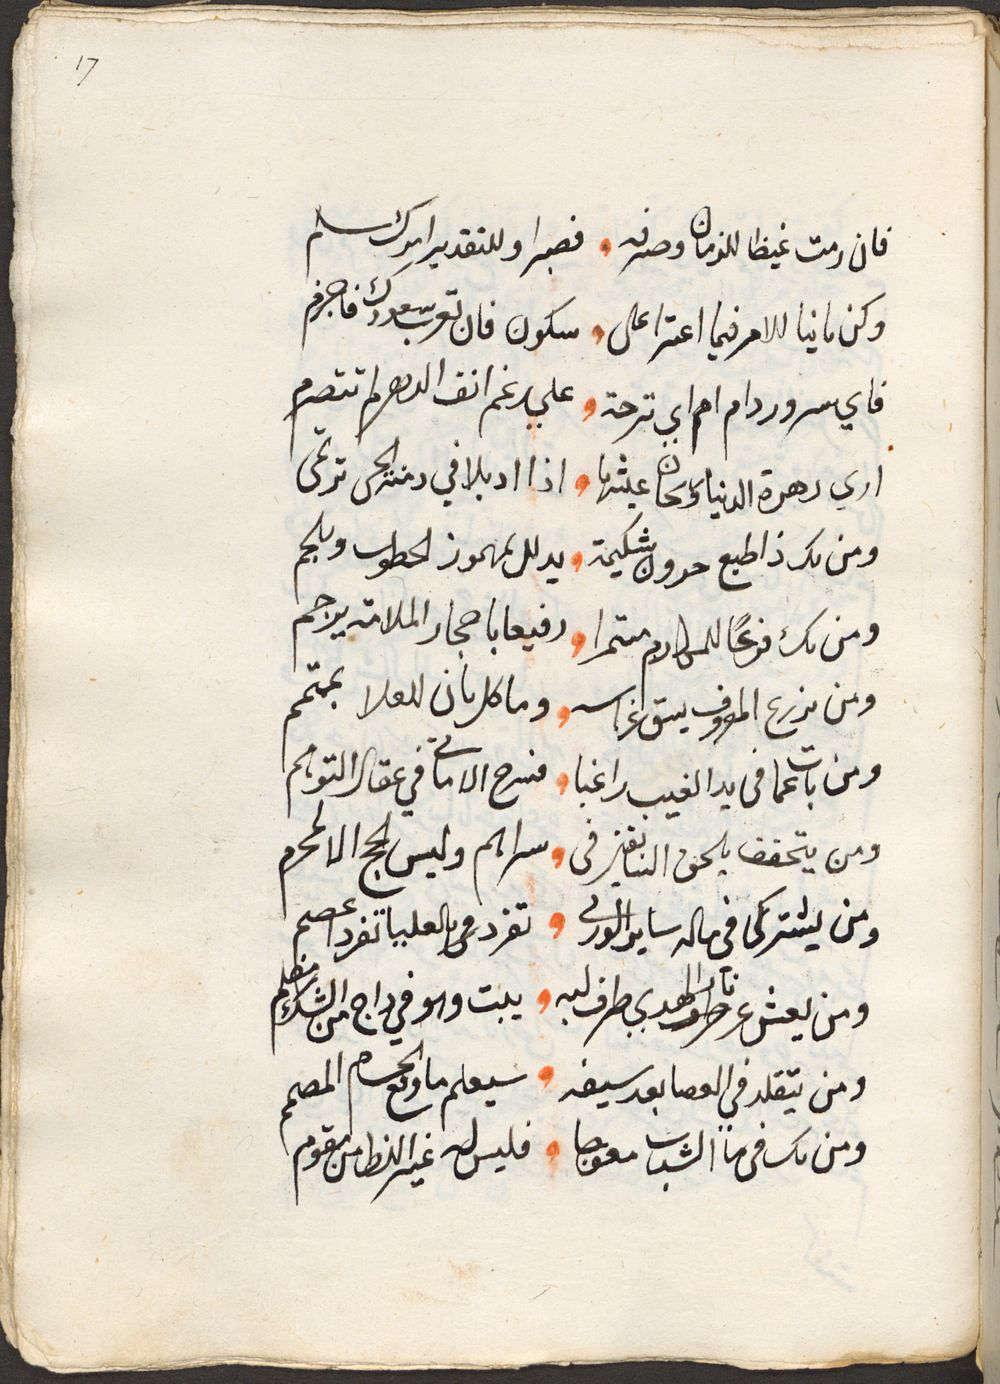 17
فان رمت غيظا للزمان وصرفه ، فصبرا وللتقدير امرك سلم
وكن بانيا للامر فيما اعترا على ، سكون فان تعرب سعودك فاجزم
فاي سرور دام ام اي ترحة ، على رغم انف الدهر لم تتصرم
ارى زهرة الدنيا عيشها ، اذا في دمنة ترتمى
ومن يك ذا طبع حرون شكيمة ، يدلل بمهموز الخطوب ويلجم
ومن يك فرعا للمكارم مثمرا ، رفيعا باحجار الملامة يرجم
ومن يزرع المعروف يسق غراسه ، وما كل بان للعلا بمتمم
ومن بات عما في يد الغيب راغبا ، فسرح الاماني في عقال التوهم
ومن يتخفف يلحق ، سراهم وليس الحج الا لمحرم
ومن يشترك في ماله ساير الورى ، تفرد في العليا تفرد اعصم
ومن يعش عن نار الهدى طرف لبه ، يبت وهو في داج من الشك مظلم
ومن يتقلد في العصا بعد سيفه ، سيعلم ما وقع الحسام المصمم
ومن يك في ماء الشباب معوجا ، فليس له غير اللظا من مقوم